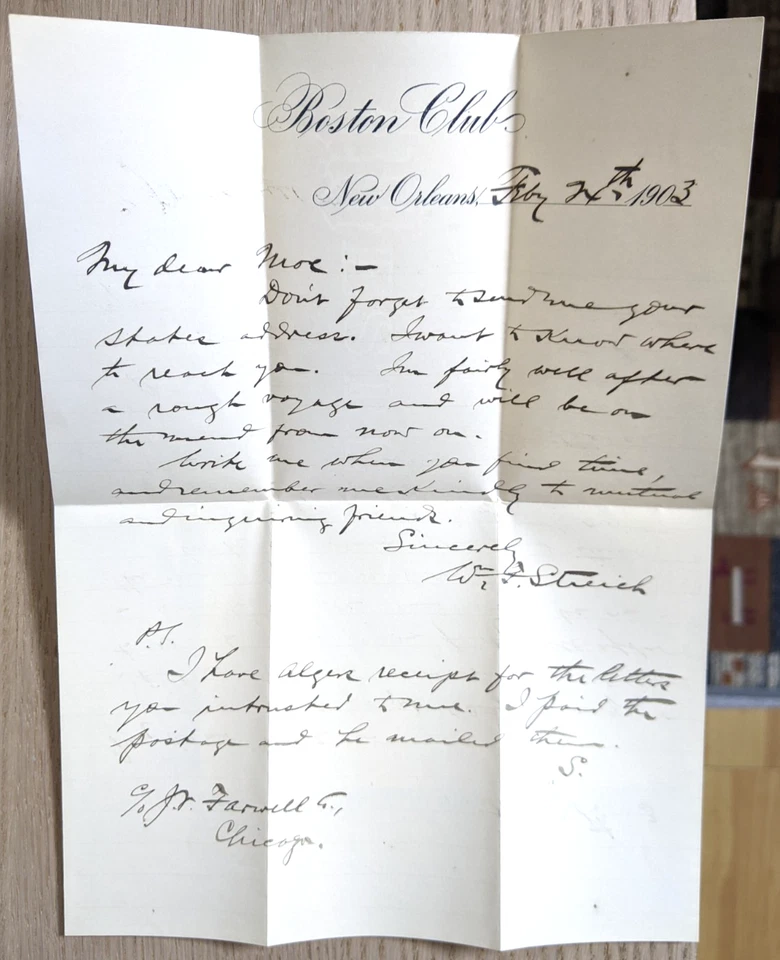 Boston Club
New Orleans, Feby 24th 1903
My dear Moe :-
Don't forget to send me your
states address. I want to know where
to reach you. Im fairly well after
a rough voyage and will be on
the mend from now on.
Write me when you find time,
and remember me kindly to mutual
and inquiring friends.
Sincerely
Wm F. Streich
P.S.
I have algers receipt for the letters
you intrusted to me. I paid the
postage and he mailed them.
S.
c/o J.V. Farwell Co.,
Chicago.